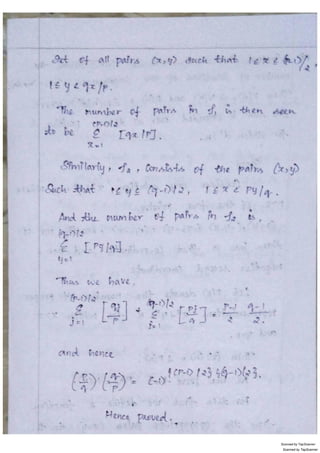 Set of all pairs (x,y) such that 1≤x≤(p-1)/2,
1≤y<qx/p.
The number of pairs in S₁ is then seen
to be Σ_{x=1}^{(p-1)/2} [qx/p].
Similarly, S₂, consists of the pairs (x,y)
Such that 1≤y≤(q-1)/2, 1≤x<py/q.
And the number of pairs in S₂ is,
Σ_{y=1}^{(q-1)/2} [py/q].
Thus we have.
Σ_{j=1}^{(p-1)/2} [qj/p] + Σ_{j=1}^{(q-1)/2} [pj/q] = p-1/2 q-1/2.
and hence
(p/q) (q/p) = (-1)^{(p-1)/2}{(q-1)/2}.
Hence proved.
Scanned by TapScanner
Scanned by TapScanner